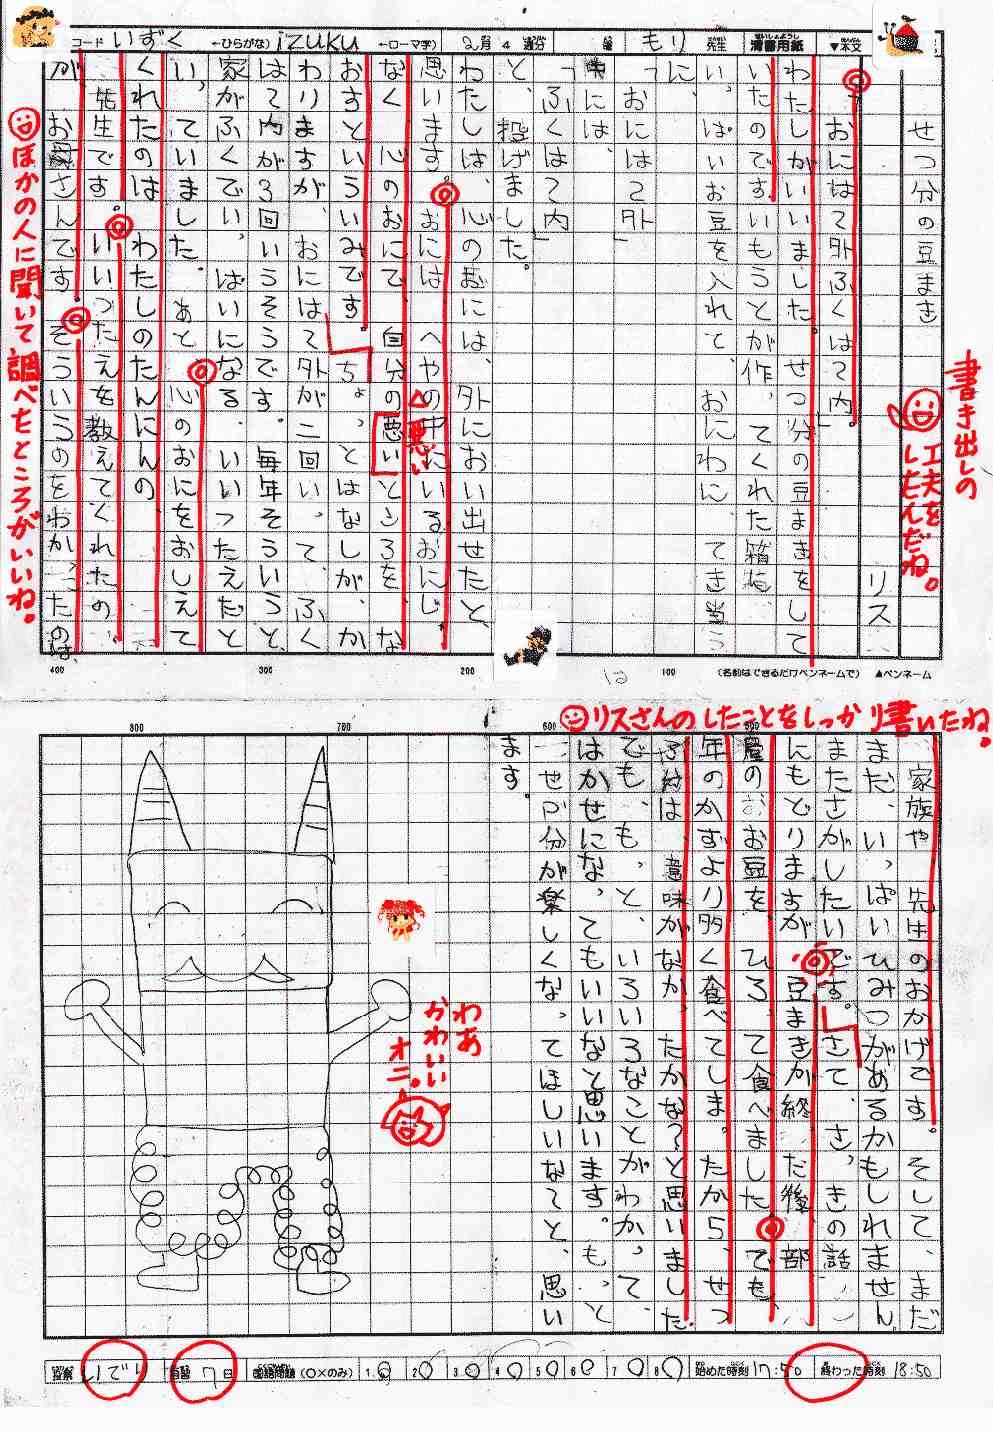 コード いずく ←ひらがな) izuku ←ローマ字) 2月 4週分 もり 先生 清書用紙 ▼本文
せつ分の豆まき
リス
「おにはて外ふくはて内」
わたしがいいました。せつ分の豆まきをして
いたのです。いもうとが作ってくれた箱に
いっぱいお豆を入れと、おにわに、てき当う
に
「おにはて外」
中には、
「ふくはて内」
と、投げました。
わたしは、心のおには、外におい出せたと
思います。おにはへやの中にいるおにじゃ
なく心のおにで自分の悪いところを、な
おすといういみです。ちょっとはなしが、か
わりますが、おにはて外が二回いって、ふく
はて内が3回、いうそうです。毎年そういうと、
家がふくでいっぱいになる。いいつたえだと
いっていました。あと心のおにをおしえて
くれたのはわたしのたんにんの
先生です。いいつたえを教えてくれたの
が、お母さんです。そういうのをわかったのは、
400
300
200
100
(名前はできるだけペンネームで) ▲ペンネーム
書き出しの
工夫を
したんだね。
悪い
ほかの人に聞いて調べたところがいいね。
リスさんのしたことをしっかり書いたね。
800
700
600
500
家族や先生のおかげです。そして、まだ
まだ、いっぱいひみつがあるかもしれません。
またさがしたいです。さて、さっきの話
にもどりますが豆まきが終った後、部
屋のおお豆を、ひろって食べました。でも、
年のかずより多く食べてしまったから、せつ
分は、意味がなかったかな?と思いました。
でも、もっと、いろいろなことがわかって、
はかせになってもいいなと思います。もっと
せつ分が楽しくなってほしいなてと、思い
ます。
わあ
かわいい
オニ。
音読 7日 国語問題(○×のみ) 1.○ 2○ 3.○ 4○ 5○ 6○ 7○ 8○ 始めた時刻 17:50 終わった時刻 18:50